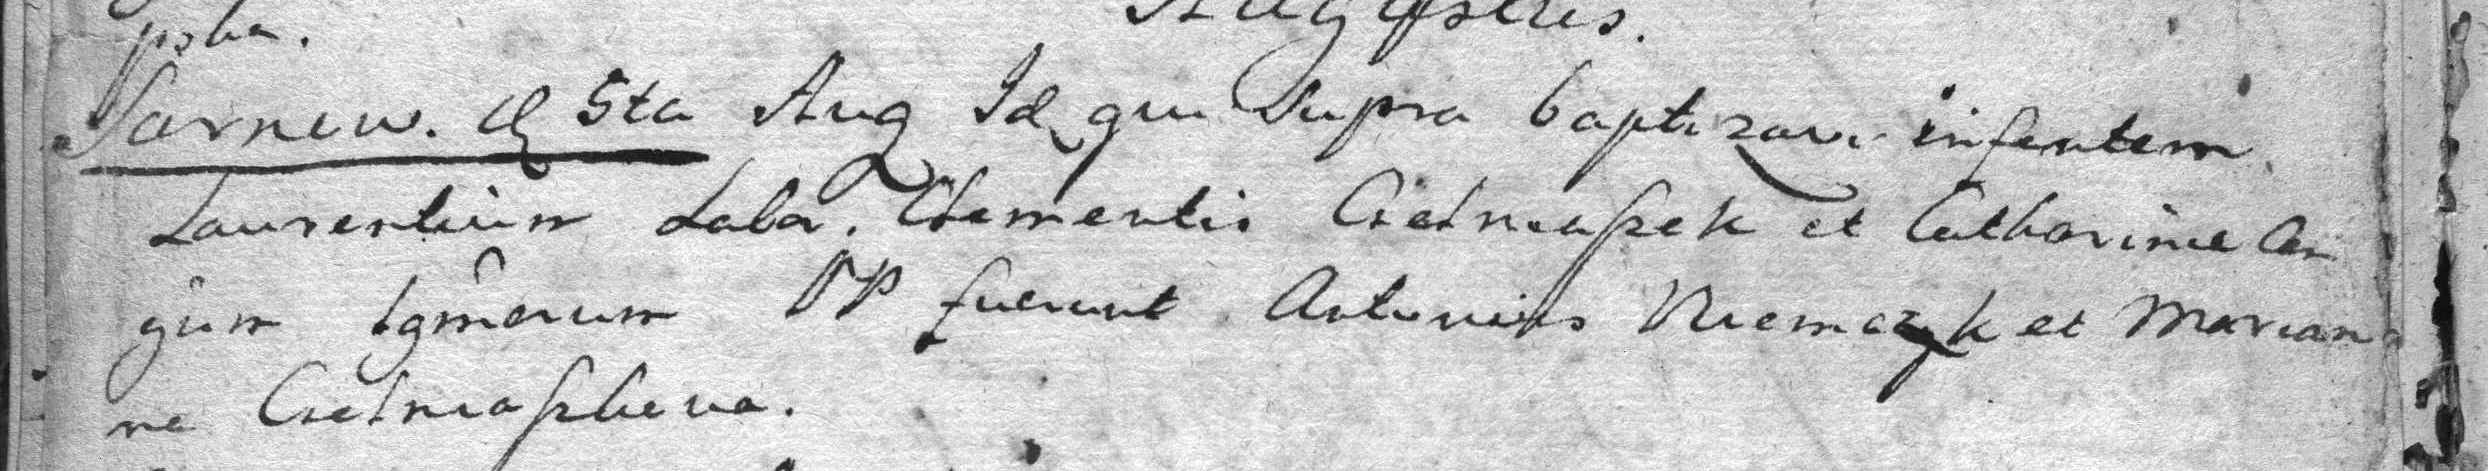 Augustus.
Sarnew. d 5ta Aug Id qui Supra baptizavi infantem
Laurentium Labor. Clementis et Catharinae Con
gum lgmorum PP fuerunt Antonius Niemczyk et Marian
na